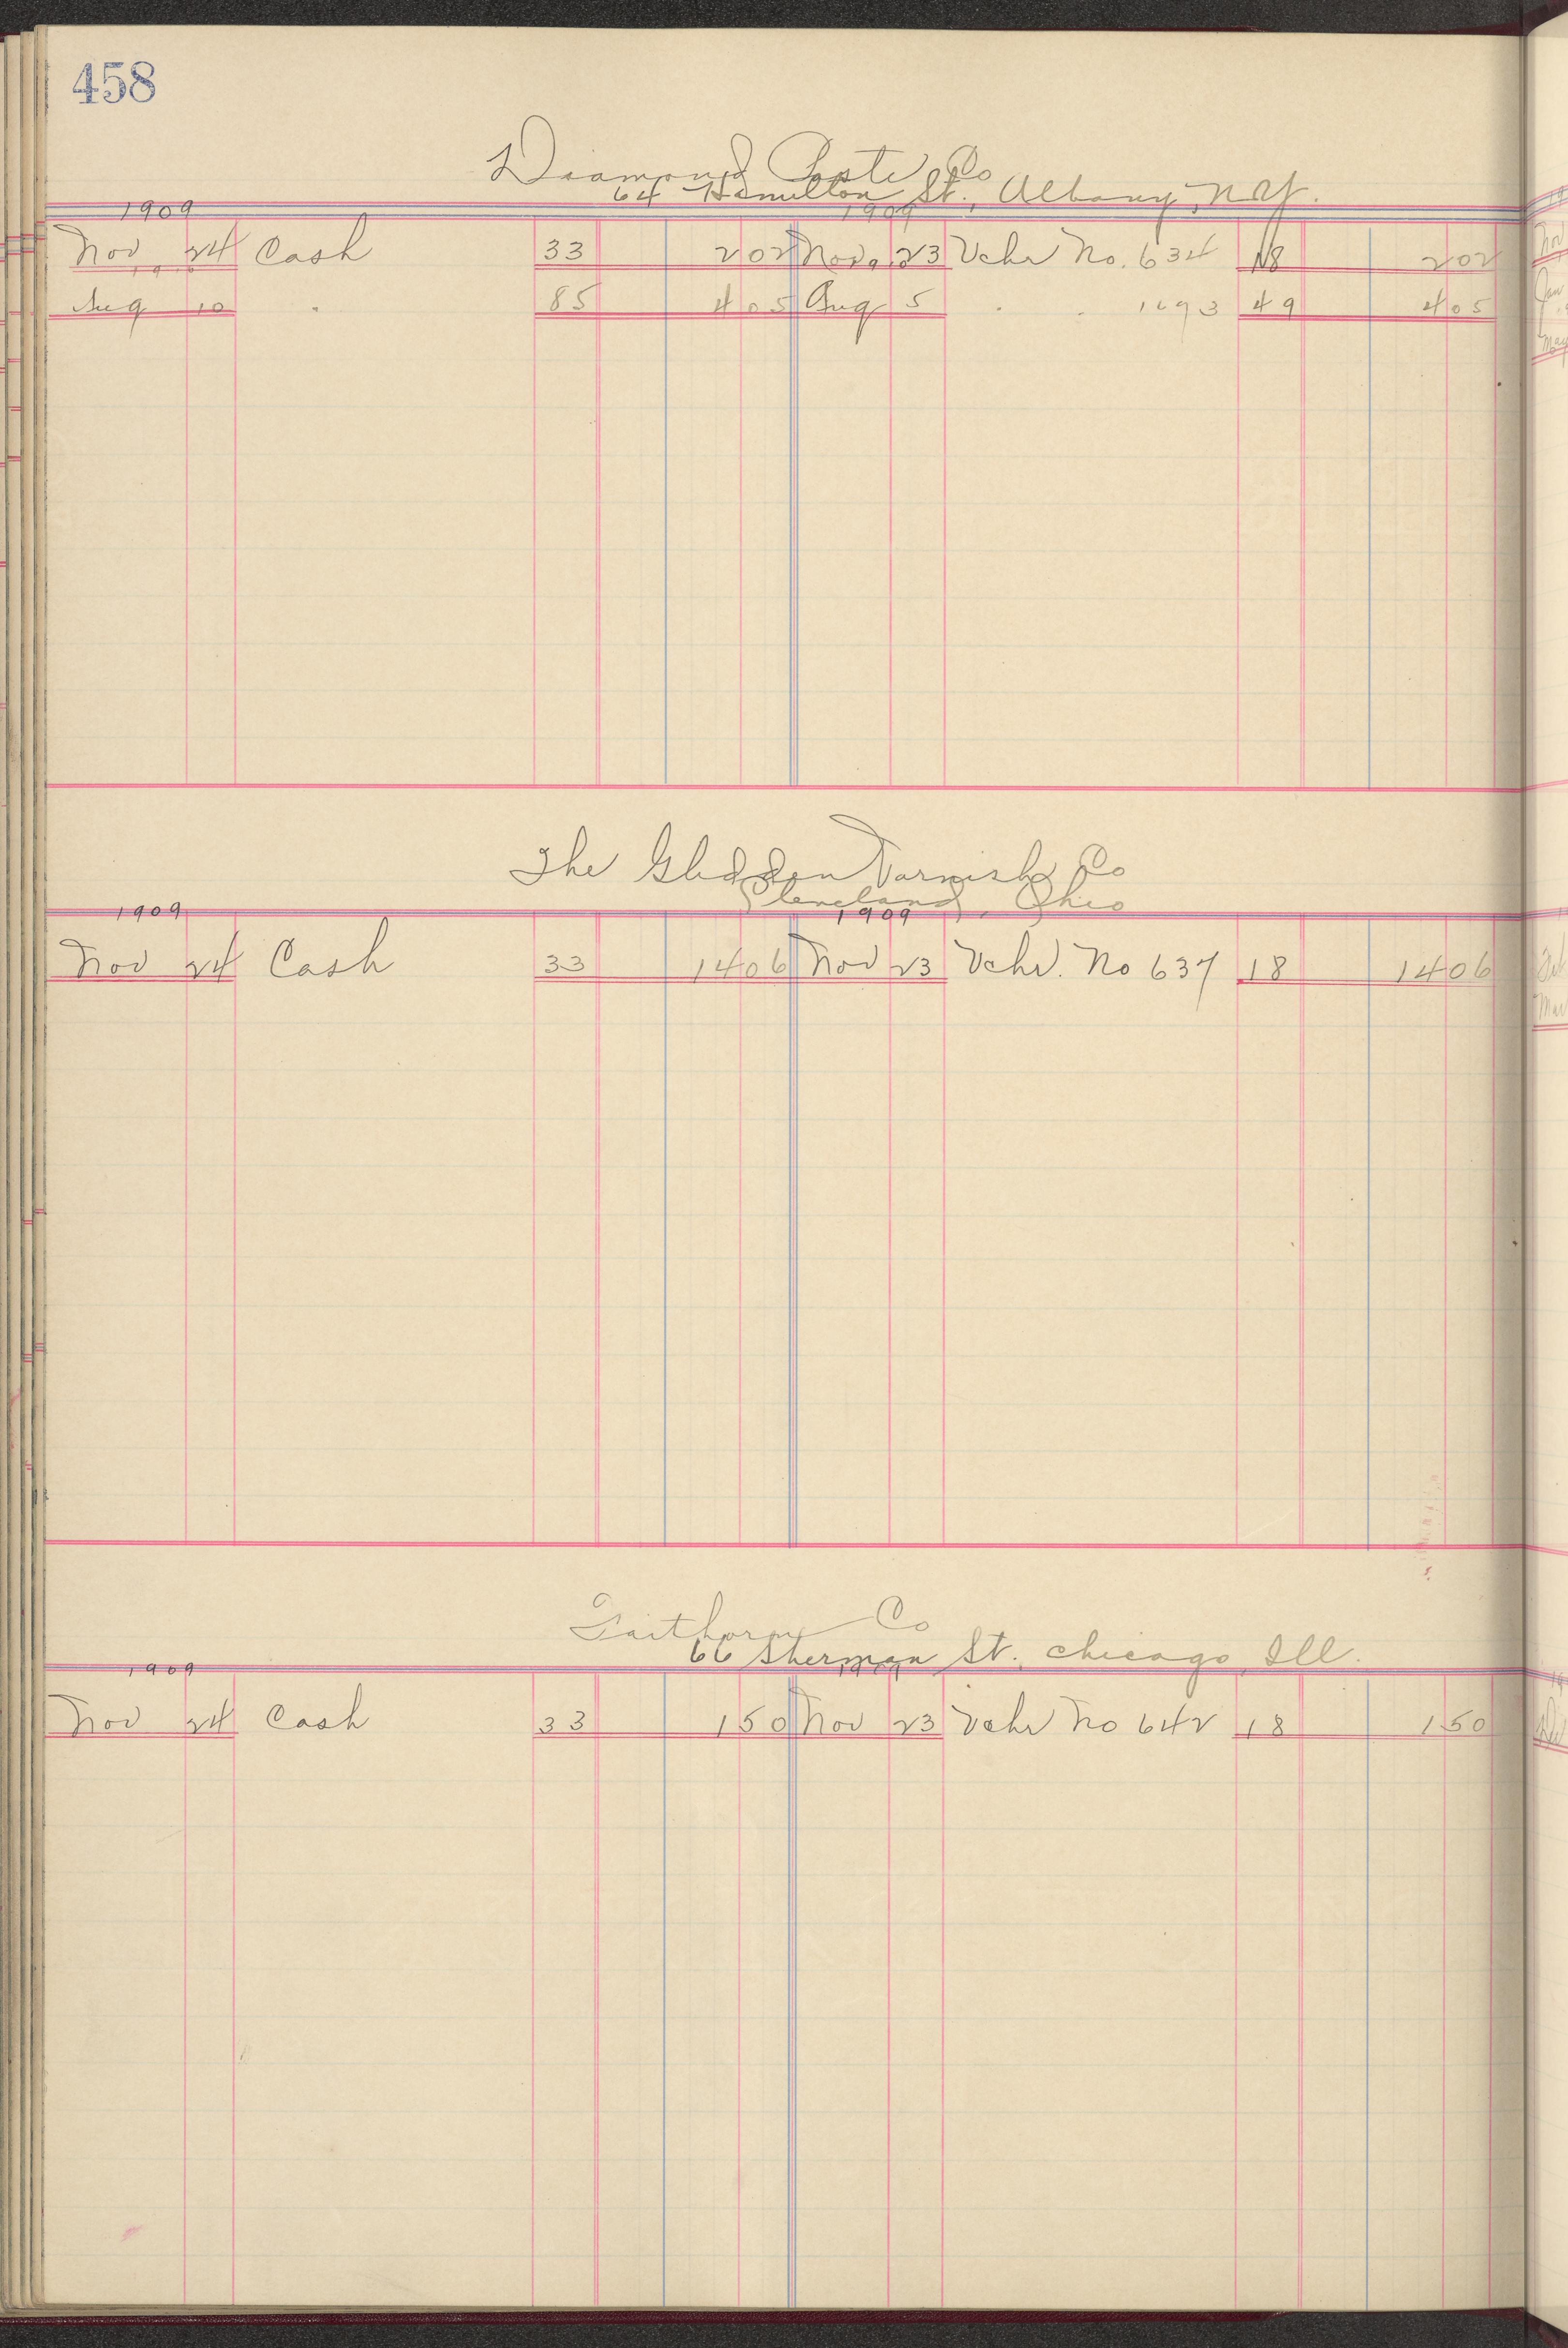 458
Diamond Paste Co
64 Hamilton St., Albany, N.Y.
1909 1909
Nov 24 Cash 33 2 02 Nov 23 Vchr No. 634 18 2 02
1910
Aug 10 " 85 4 05 Aug 5 " " 1693 49 4 05
The Glidden Varnish Co
Cleveland, Ohio
1909 1909
Nov 24 Cash 33 14 06 Nov 23 Vchr. No 637 18 14 06
Faithorn Co
66 Sherman St. Chicago, Ill.
1909 1909
Nov 24 Cash 33 1 50 Nov 23 Vchr No 642 18 1 50